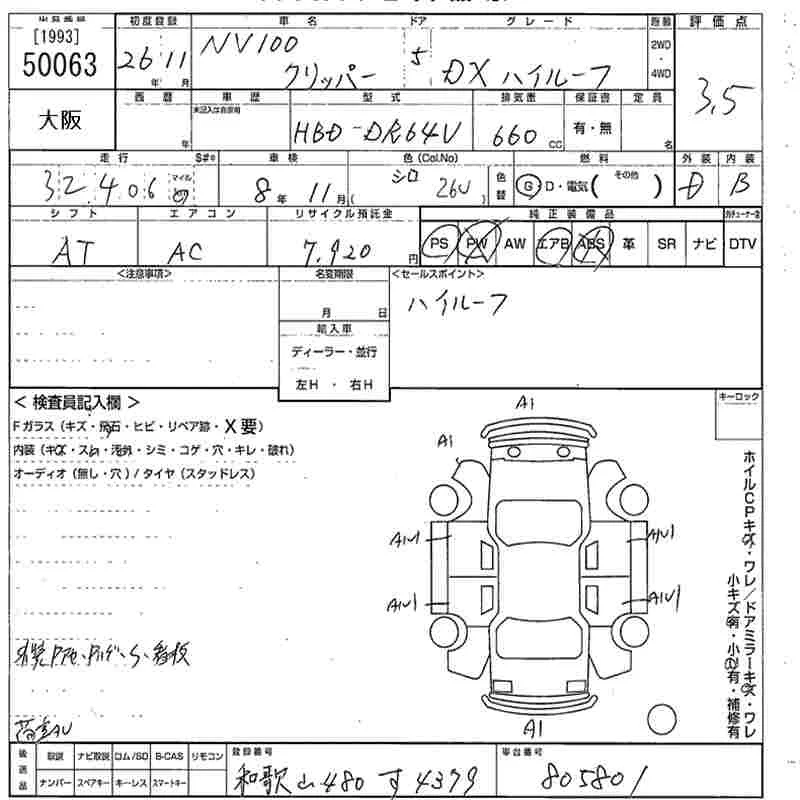 [1993]
50063
大阪
初度登録 車名 ドア グレード 評価点
26 年 11 月
NV100
クリッパー
5
DX ハイルーフ
2WD
・
4WD
3.5
西暦 車歴 型式 排気量 保証書 定員
未記入は自家用
年
HBD-DR64V
660 CC
有・無
名
走行 S#® 車検 色(Col.No) 燃料 外装 内装
32,406 マイル
8 年 11 月(
シロ 26U )
色替
G・D・電気( その他 )
D B
シフト エアコン リサイクル預託金 純正装備品
AT
AC
7,920 円
PS PW AW エアB ABS 革 SR ナビ DTV
<注意事項> 名変期限 <セールスポイント>
月 日
ハイルーフ
輸入車
ディーラー・並行
左H ・ 右H
< 検査員記入欄 > キーロック
Fガラス(キズ・飛石・ヒビ・リペア跡・X要)
内装(キズ・スレ・汚れ・シミ・コゲ・穴・キレ・破れ)
オーディオ(無し・穴)/タイヤ(スタッドレス)
A1
A1
A1
ホイルCPキズ・ワレ/ドアミラーキズ・ワレ
小キズ有・小凹有・補修有
後送品
取説 ナビ取説 ロム/SD B-CAS リモコン
ナンバー スペアキー キーレス スマートキー
登録番号
和歌山 480 す 4379
車台番号
805801